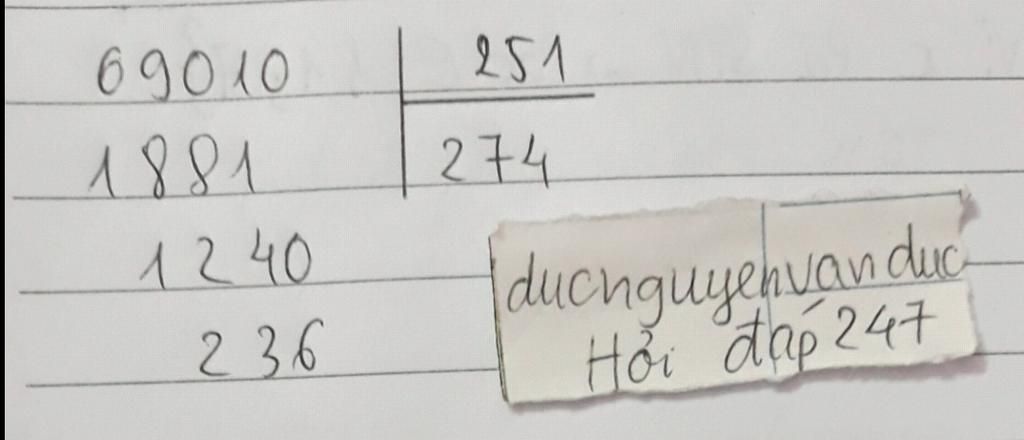 69010 251
1881 274
1240
236
ducnguyenvanduc
Hỏi đáp 247